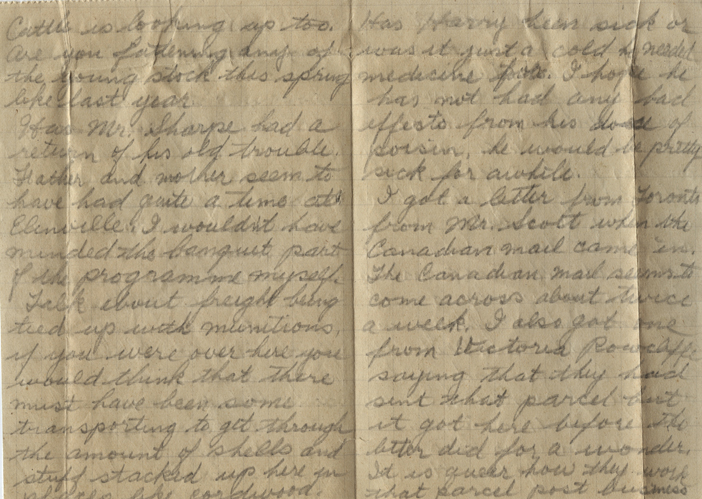 Cattle is looking up too.
Are you fatening any of
the young stock this spring
like last year.
Has Mr. Sharpe had a
return of his old trouble.
Father and mother seem to
have had quite a time at
Elinville. I wouldn't have
minded the banquit part
of the programme myself.
Talk about freight being
tied up with munitions,
if you were over here you
would think that there
must have been some
transporting to get through
the amount of shells and
stuff stacked up here in
places like cordwood.
Has Harry been sick or
was it just a cold he needed
medicine for. I hope he
has not had any bad
effects from his dose of
poisin, he would be pretty
sick for awhile.
I got a letter from Toronto
from Mr. Scott when the
Canadian mail came in.
The Canadian mail seems to
come across about twice
a week. I also got one
from Victoria Rowcliffe
saying that they had
sent that parcel but
it got here before the
letter did for a wonder.
It is queer how they work
that parcel post business